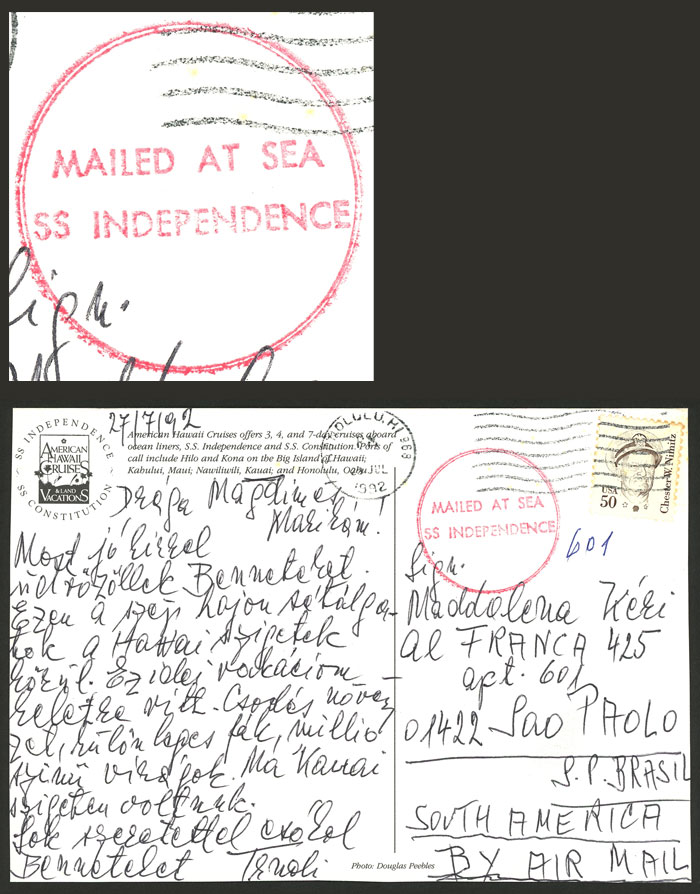 MAILED AT SEA
SS INDEPENDENCE
Sign.
27/7/92
SS INDEPENDENCE
AMERICAN
HAWAII
CRUISES
& LAND
VACATIONS
SS CONSTITUTION
American Hawaii Cruises offers 3, 4, and 7-day cruises aboard
ocean liners, S.S. Independence and S.S. Constitution. Ports of
call include Hilo and Kona on the Big Island of Hawaii;
Kahului, Maui; Nawiliwili, Kauai; and Honolulu, Oahu.
HONOLULU, HI 968
JUL
1992
USA
50
Chester W. Nimitz
MAILED AT SEA
SS INDEPENDENCE
601
Drága
Marikám!
Most
üdvözöllek Benneteket.
Ezen a szép hajon
tok a Hawai szigetek
közül. Ez idei vakációm
vitt. Csodás növény
zet, különleges fák, millio
szinü virágok. Ma Kauai
szigeten voltunk.
Sok szeretettel csókol
Benneteket
Sign.
Maddalena Kéri
al FRANCA 425
apt. 601
01422 Sao PAOLO
S.P. BRASIL
SOUTH AMERICA
BY AIR MAIL
Photo: Douglas Peebles